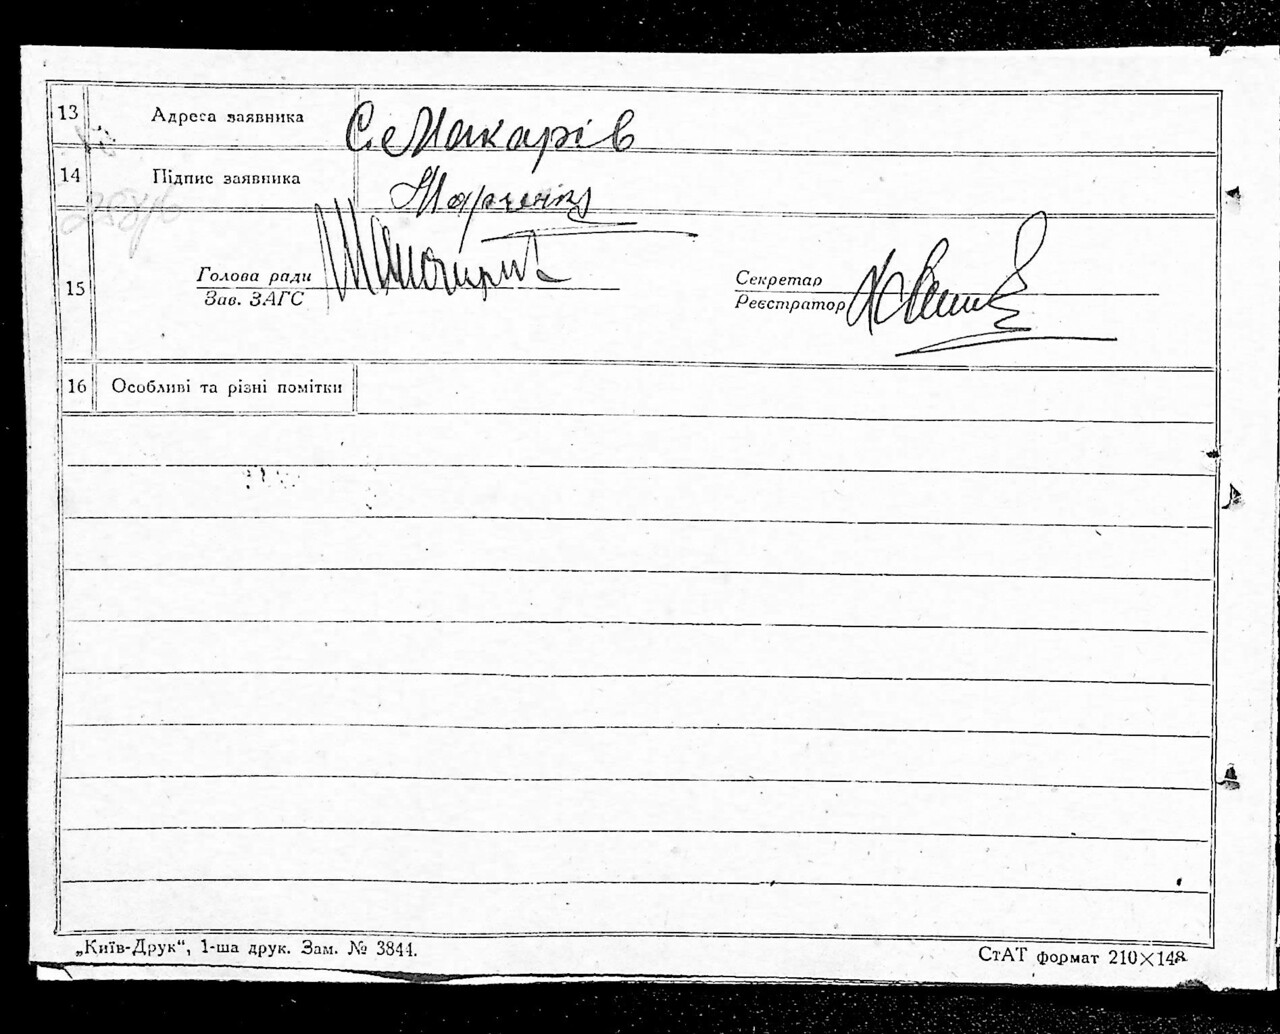 13 Адреса заявника С. Макарів
14 Підпис заявника
15 Голова ради
Зав. ЗАГС
Секретар
Реєстратор
16 Особливі та різні помітки
„Київ-Друк“, 1-ша друк. Зам. № 3844.
СтАТ формат 210×148